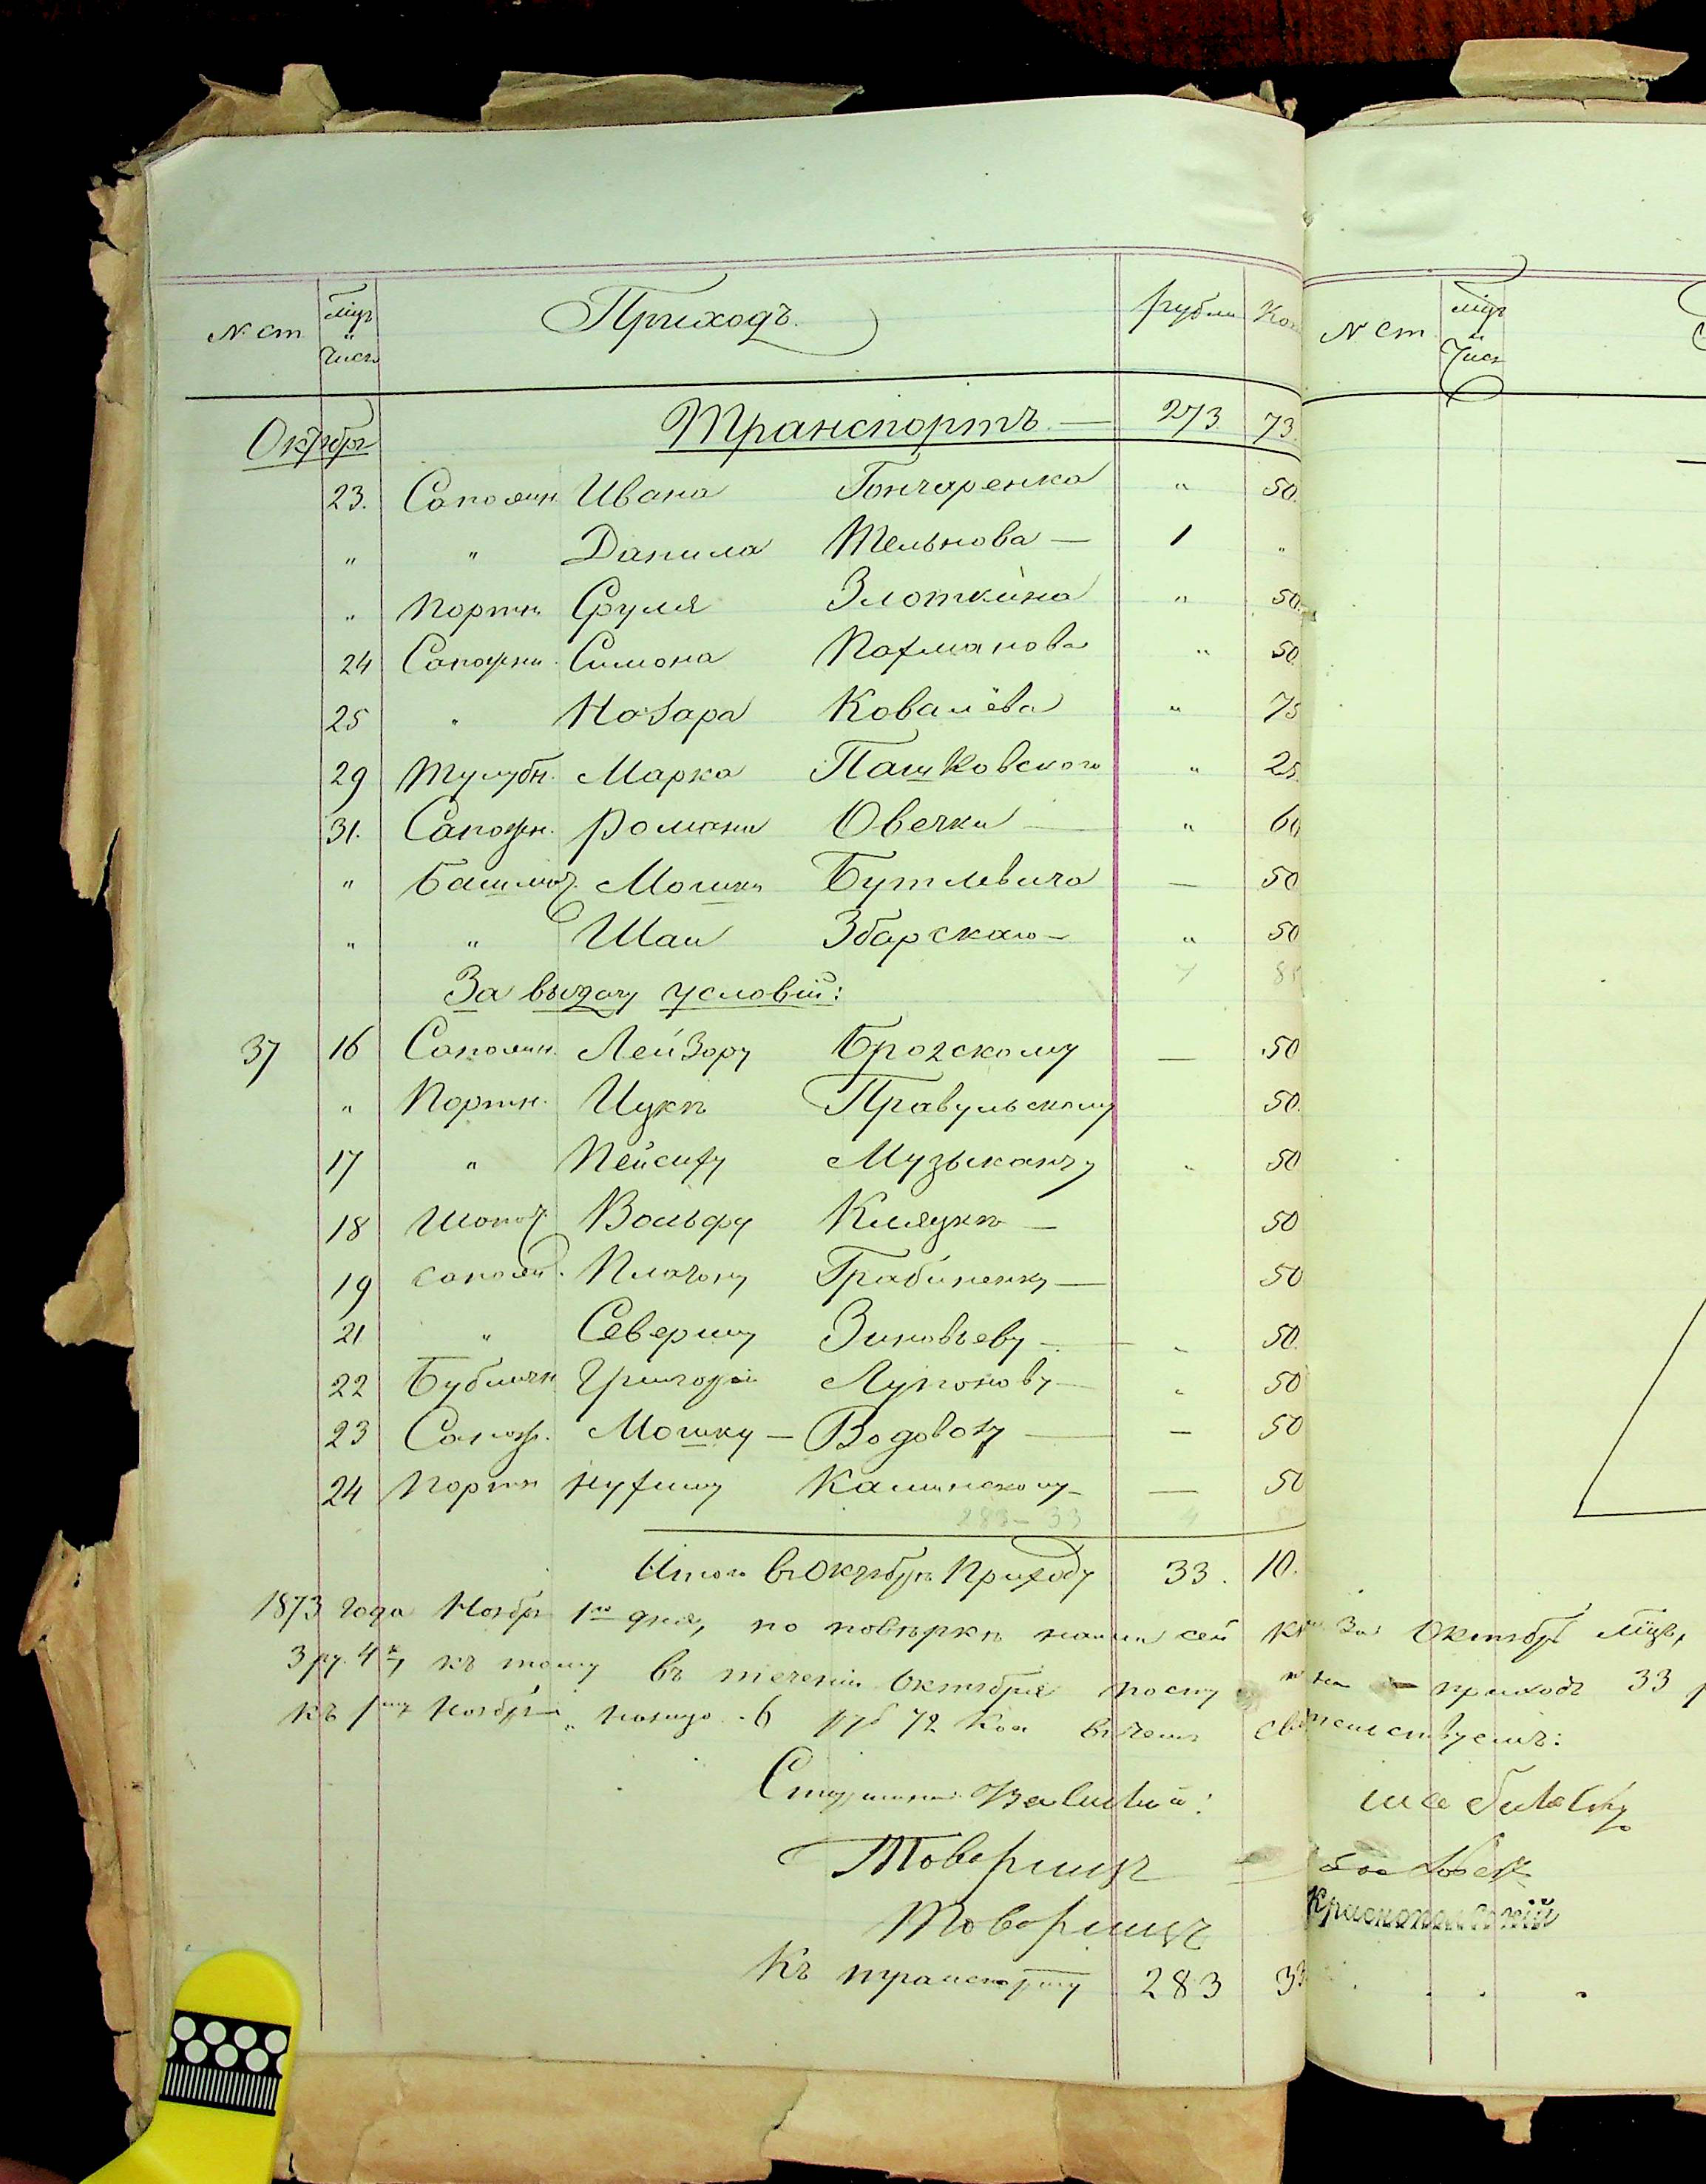 № ст. Мцъ и Число Приходъ. Рубли Коп № ст Мцъ и Числ
Октябрь Транспортъ — 273 73.
23. Сапожн. Ивана Гончаренка " 50.
" " Данила Тельнова — 1 "
" Портн. Сруля Злоткина " 50.
24 Сапожни. Симона Пахманова " 50
25 " Назара Ковалёва " 75
29 Тулубн. Марка Пашковского " 25.
31. Сапожн. Романа Овечки — " 60
" Башмач. Мошки Бутлевича — 50
" " Шаи Збарскаго — " 50
За выдачу условій:
37 16 Сапожн. Лейзору Бродскому — 50
" Портн. Ицкѣ Правульскому 50.
17 " Пейсиху Музыканту " 50
18 Шапоч. Вольфу Кляцкѣ — 50
19 сапожн. Платону Грабиненку — 50
21 " Севериму Зиновьеву — " 50.
22 Бубличн Григорій Лупонову — " 50
23 Сапож. Мошку — Водовозу — — 50
24 Портн Нухиму Калинскому — — 50
283 — 33 4
Итого въ Октябрѣ Приходу 33. 10.
1873 года Ноября 1го дня, по повѣркѣ нашей сей Кн За Октябрь Мцъ,
3 ру. 4 к, къ тому въ теченіи Октября посту на приходъ 33
къ 1му Ноября " 6 руб 72 Коп въ чемъ свидѣтельствуемъ:
Товарищъ
Товарищъ Краснопольскій
Къ транспорту 283 33